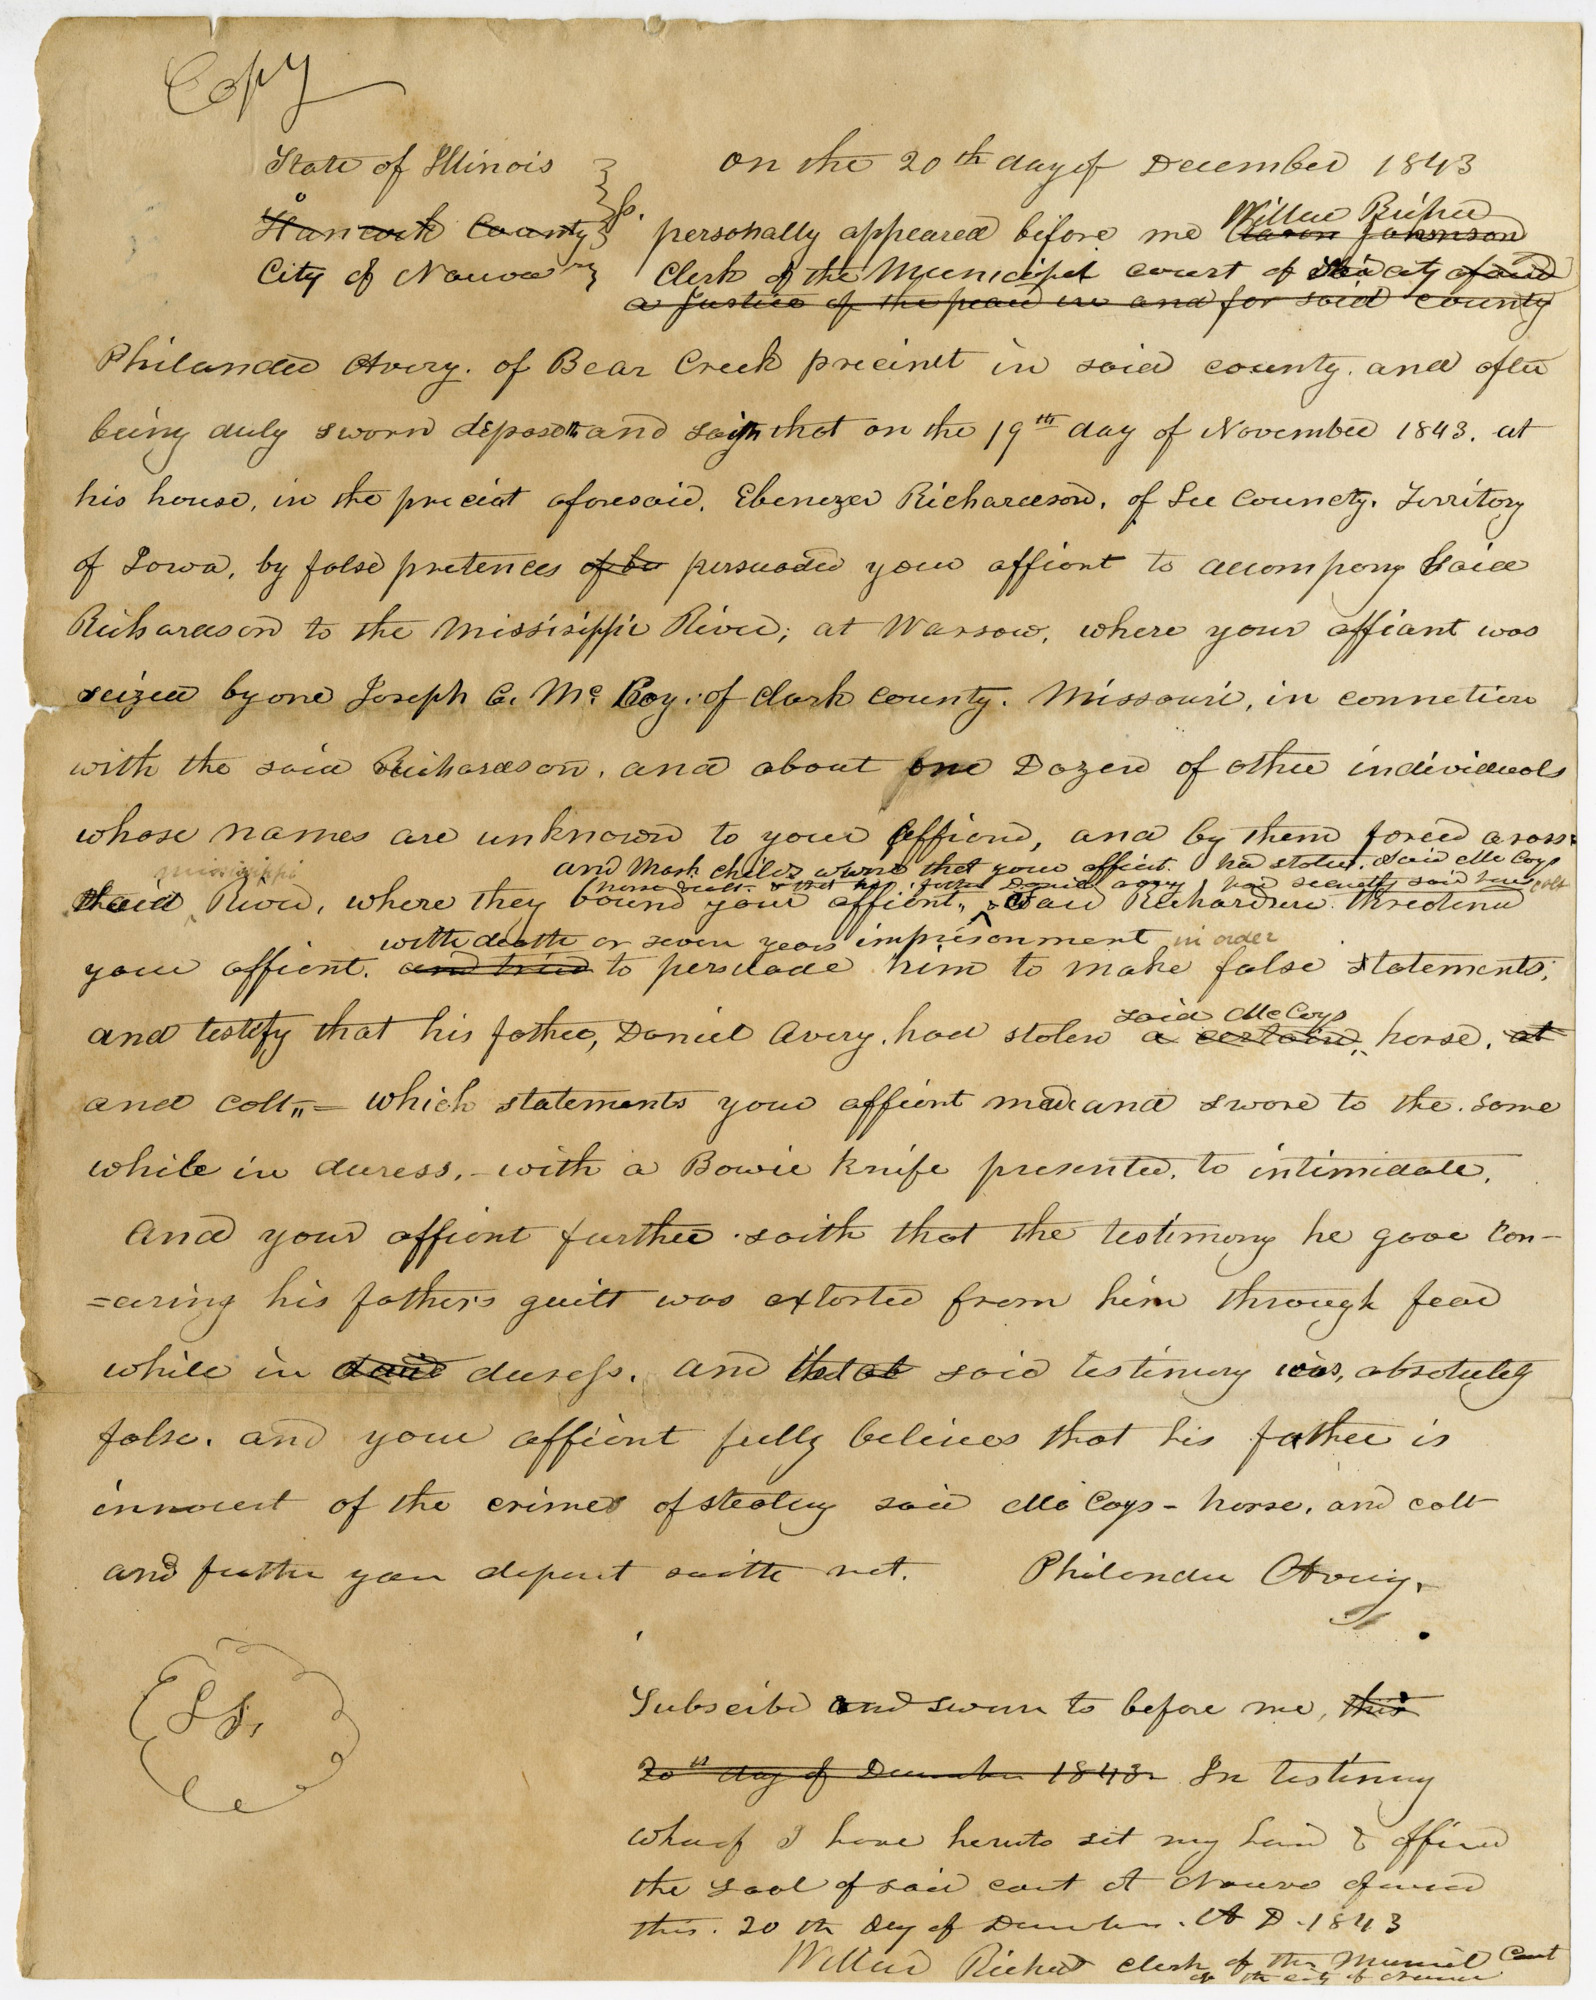 Copy
State of Illinois
Hancock County ss.
City of Nauvoo
on the 20th day of December 1843
personally appeared before me Aaron Johnson
Willard Richards
Clerk of the Municipal court of city
a Justice of the peace in and for said county
Philander Avery. of Bear Creek precinct in said county. and after
being duly sworn deposeth and saith that on the 19th day of November 1843. at
his house, in the precinct aforesaid. Ebenezer Richardson. of Lee County. Territory
of Iowa, by false pretences persuaded your affiant to accompany said
Richardson to the Mississippi River; at Warsaw, where your affiant was
seized by one Joseph C. Mc Coy. of Clark County. Missouri, in connetion
with the said Richardson. and about one Dozen of other individuals
whose names are unknown to your affiant, and by them forced across
mississippi
and Mark Childs swore that your affiant had stolen said McCoys
horse & that his father Daniel Avery had said horse colt
said River, where they bound your affiant, said Richardson threatened
with death or seven years imprisonment in order
your affiant. and tried to persuade him to make false statements;
and testify that his father, Daniel Avery. had stolen a certain horse. at
said McCoys
and colt,,= which statements your affiant made and swore to the same
while in duress,- with a Bowie Knife presented, to intimidate.
And your affiant further saith that the testimony he gave con-
=cering his fathers guilt was extorted from him through fear
while in said duress. and that said testimony was, absolutely
false. and your affiant fully believes that his father is
innocent of the crimes of stealing said McCoys - horse, and colt
and further your deponent saith not. Philander Avery.
L S,
Subscribed and sworn to before me, this
20th day of December 1843 In testimony
whereof I have hereunto set my hand & affixed
the seal of said court at Nauvoo aforesaid
this. 20th day of December. A D. 1843
Willard Richards Clerk of the Municipal Court
of the City of Nauvoo